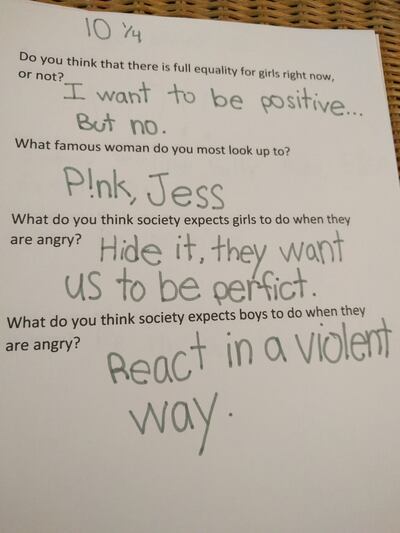 10 ¼
Do you think that there is full equality for girls right now,
or not?
I want to be positive...
But no.
What famous woman do you most look up to?
P!nk, Jess
What do you think society expects girls to do when they
are angry? Hide it, they want
us to be perfict.
What do you think society expects boys to do when they
are angry?
React in a violent
way.